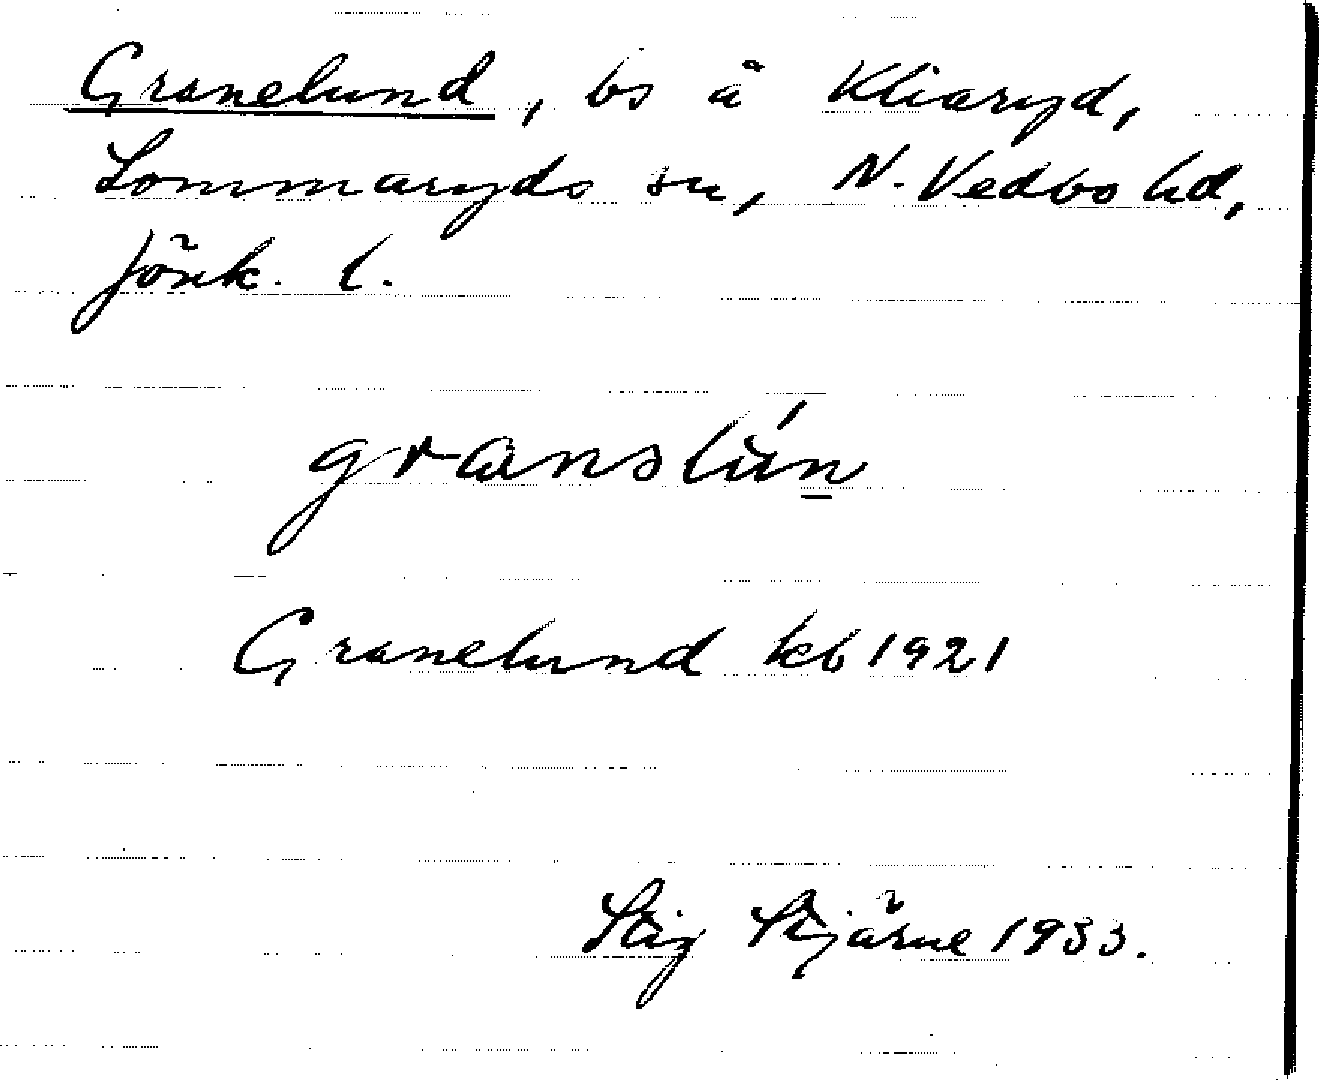 Granelund, bs å Kliaryd,
Sommaryds sn, N. Vedbo hd,
Jönk. l.
granslún
Granelund kb 1921
Stig Stjärne 1933.